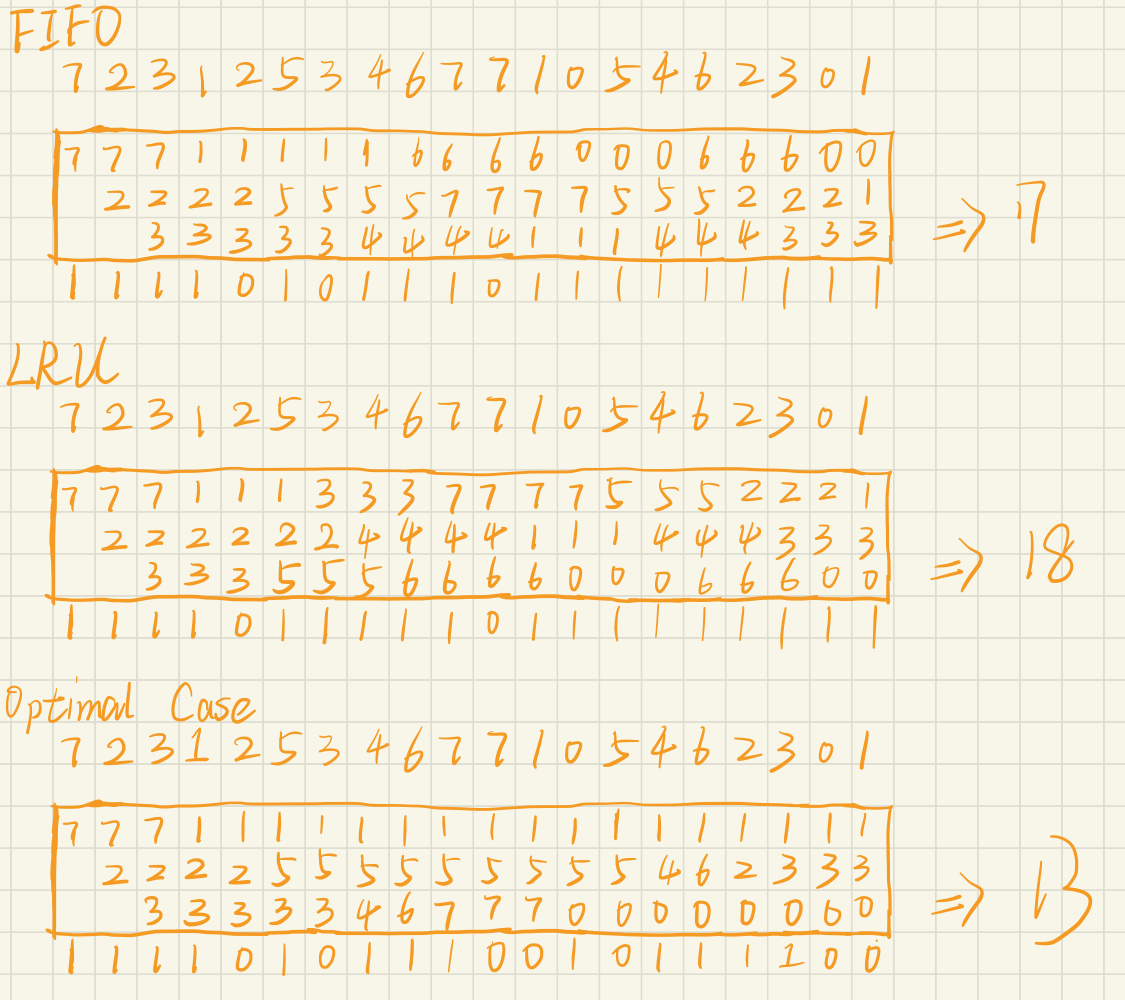 FIFO
7 2 3 1 2 5 3 4 6 7 7 1 0 5 4 6 2 3 0 1
7 7 7 1 1 1 1 1 6 6 6 6 0 0 0 6 6 6 0 0
2 2 2 2 5 5 5 5 7 7 7 7 5 5 5 2 2 2 1
3 3 3 3 3 4 4 4 4 1 1 1 4 4 4 3 3 3
⇒ 17
1 1 1 1 0 1 0 1 1 1 0 1 1 1 1 1 1 1 1 1
LRU
7 2 3 1 2 5 3 4 6 7 7 1 0 5 4 6 2 3 0 1
7 7 7 1 1 1 3 3 3 7 7 7 7 5 5 5 2 2 2 1
2 2 2 2 2 2 4 4 4 4 1 1 1 4 4 4 3 3 3
3 3 3 5 5 5 6 6 6 6 0 0 0 6 6 6 0 0
⇒ 18
1 1 1 1 0 1 1 1 1 1 0 1 1 1 1 1 1 1 1 1
Optimal Case
7 2 3 1 2 5 3 4 6 7 7 1 0 5 4 6 2 3 0 1
7 7 7 1 1 1 1 1 1 1 1 1 1 1 1 1 1 1 1 1
2 2 2 2 5 5 5 5 5 5 5 5 5 4 6 2 3 3 3
3 3 3 3 3 4 6 7 7 7 0 0 0 0 0 0 0 0
⇒ 13
1 1 1 1 0 1 0 1 1 1 0 0 1 0 1 1 1 1 0 0